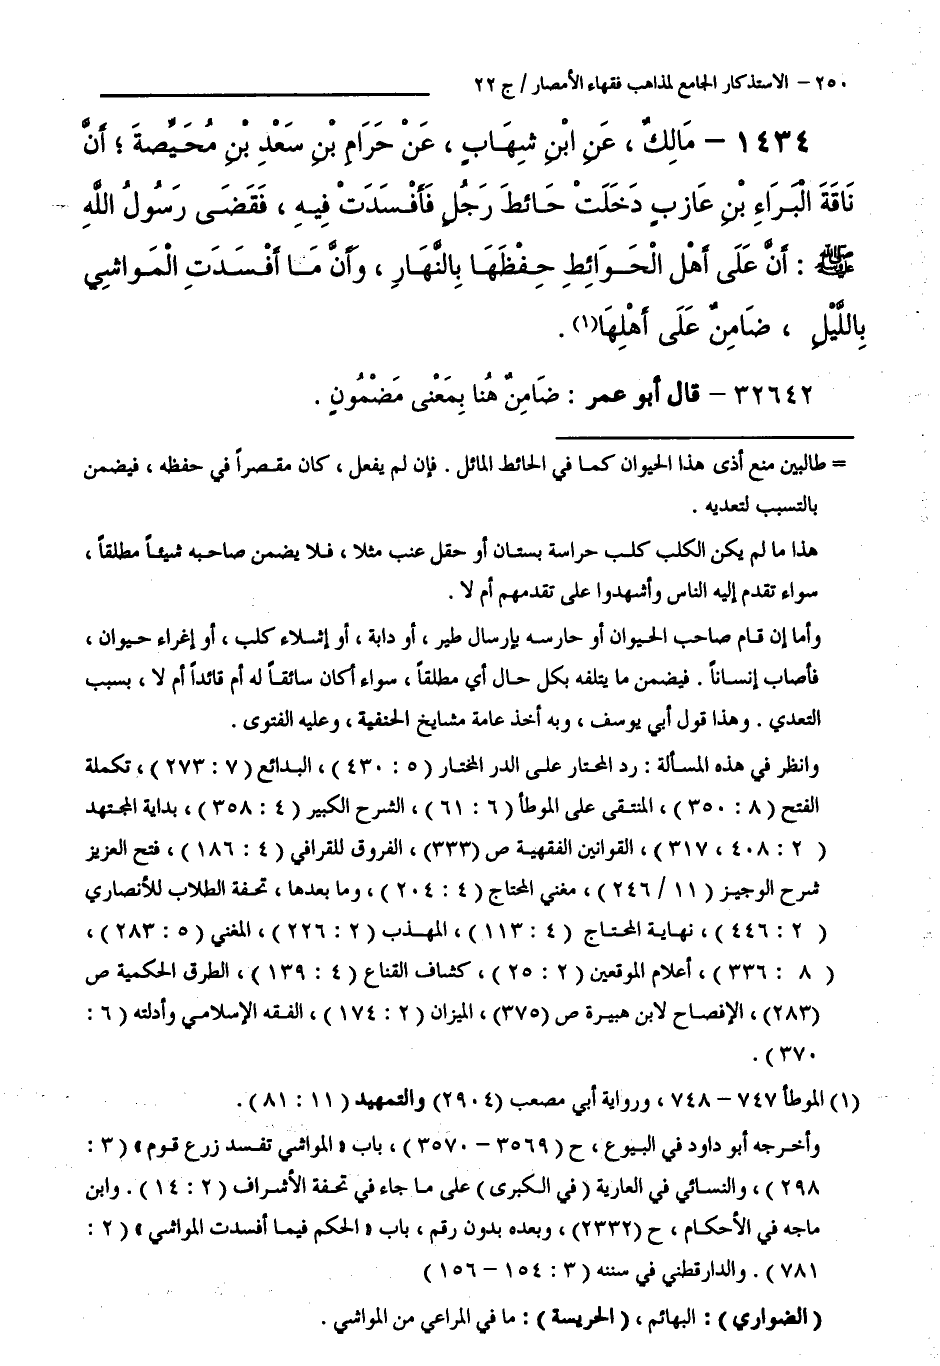 ٢٥٠ – الاستذكار الجامع لمذاهب فقهاء الأمصار / ج ٢٢
١٤٣٤ – مَالِكٌ ، عَنِ ابْنِ شِهَابٍ ، عَنْ حَرَامِ بْنِ سَعْدِ بْنِ مُحَيِّصَةَ ؛ أَنَّ
نَاقَةَ الْبَرَاءِ بْنِ عَازِبٍ دَخَلَتْ حَائِطَ رَجُلٍ فَأَفْسَدَتْ فِيهِ ، فَقَضَى رَسُولُ اللَّهِ
ﷺ : أَنَّ عَلَى أَهْلِ الْحَوَائِطِ حِفْظَهَا بِالنَّهَارِ ، وَأَنَّ مَا أَفْسَدَتِ الْمَوَاشِي
بِاللَّيْلِ ، ضَامِنٌ عَلَى أَهْلِهَا(١) .
٣٢٦٤٢ – قال أبو عمر : ضَامِنٌ هُنا بِمَعْنى مَضْمُونٍ .
= طالبين منع أذى هذا الحيوان كما في الحائط المائل . فإن لم يفعل ، كان مقصراً في حفظه ، فيضمن
بالتسبب لتعديه .
هذا ما لم يكن الكلب كلب حراسة بستان أو حقل عنب مثلا ، فلا يضمن صاحبه شيئاً مطلقاً ،
سواء تقدم إليه الناس وأشهدوا على تقدمهم أم لا .
وأما إن قام صاحب الحيوان أو حارسه بإرسال طير ، أو دابة ، أو إشلاء كلب ، أو إغراء حيوان ،
فأصاب إنساناً . فيضمن ما يتلفه بكل حال أي مطلقاً ، سواء أكان سائقاً له أم قائداً أم لا ، بسبب
التعدي . وهذا قول أبي يوسف ، وبه أخذ عامة مشايخ الحنفية ، وعليه الفتوى .
وانظر في هذه المسألة : رد المحتار على الدر المختار ( ٥ : ٤٣٠ ) ، البدائع ( ٧ : ٢٧٣ ) ، تكملة
الفتح ( ٨ : ٣٥٠ ) ، المنتقى على الموطأ ( ٦ : ٦١ ) ، الشرح الكبير ( ٤ : ٣٥٨ ) ، بداية المجتهد
( ٢ : ٤٠٨ ، ٣١٧ ) ، القوانين الفقهية ص (٣٣٣) ، الفروق للقرافي ( ٤ : ١٨٦ ) ، فتح العزيز
شرح الوجيز ( ١١ / ٢٤٦ ) ، مغني المحتاج ( ٤ : ٢٠٤ ) ، وما بعدها ، تحفة الطلاب للأنصاري
( ٢ : ٤٤٦ ) ، نهاية المحتاج ( ٤ : ١١٣ ) ، المهذب ( ٢ : ٢٢٦ ) ، المغني ( ٥ : ٢٨٣ ) ،
( ٨ : ٣٣٦ ) ، أعلام الموقعين ( ٢ : ٢٥ ) ، كشاف القناع ( ٤ : ١٣٩ ) ، الطرق الحكمية ص
(٢٨٣) ، الإفصاح لابن هبيرة ص (٣٧٥) ، الميزان ( ٢ : ١٧٤ ) ، الفقه الإسلامي وأدلته ( ٦ :
٣٧٠ ) .
(١) الموطأ ٧٤٧ – ٧٤٨ ، ورواية أبي مصعب (٢٩٠٤) والتمهيد ( ١١ : ٨١ ) .
وأخرجه أبو داود في البيوع ، ح ( ٣٥٦٩ – ٣٥٧٠ ) ، باب « المواشي تفسد زرع قوم » ( ٣ :
٢٩٨ ) ، والنسائي في العارية ( في الكبرى ) على ما جاء في تحفة الأشراف ( ٢ : ١٤ ) . وابن
ماجه في الأحكام ، ح (٢٣٣٢) ، وبعده بدون رقم ، باب « الحكم فيما أفسدت المواشي » ( ٢ :
٧٨١ ) . والدارقطني في سننه ( ٣ : ١٥٤ – ١٥٦ )
( الضواري ) : البهائم ، ( الحريسة ) : ما في المراعي من المواشي .